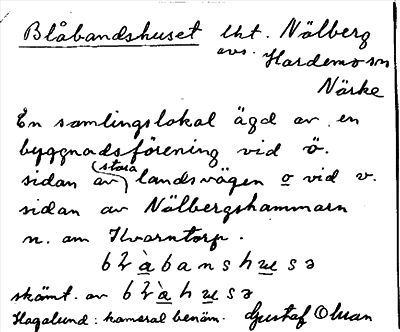 Blåbandshuset lht. Nälberg
avs. Hardemo sn
Närke
En samlingslokal ägd av en
byggnadsförening vid ö.
sidan av (stora) landsvägen o vid v.
sidan av Nälbergshammarn
n. om Kvarntorp.
bɫàbanshusə
skämt. av bɫàhusə
Hagalund: kameral benäm. Gustaf